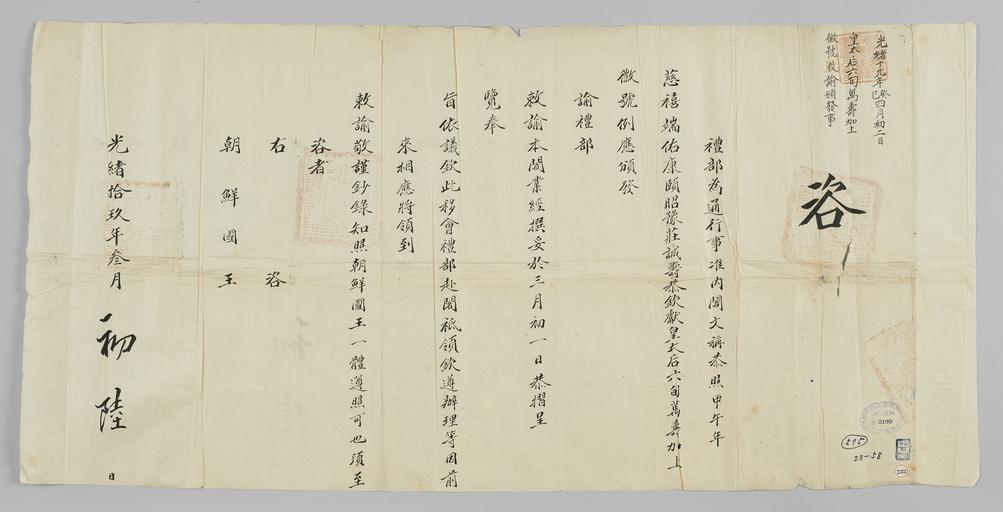 光緒十九年癸巳四月初二日
皇太后六旬萬壽加上
徽號敕諭頒發事
咨
禮部為通行事准内閣文稱恭照甲午年
慈禧端佑康頤昭豫莊誠壽恭欽獻皇太后六旬萬壽加上
徽號例應頒發
諭禮部
敕諭本閣業經撰妥於三月初一日恭摺呈
覽奉
旨依議欽此移會禮部赴閣祗領欽遵辦理等因前
來相應將領到
敕諭敬謹鈔錄知照朝鮮國王一體遵照可也須至
咨者
右咨
朝鮮國王
光緒拾玖年叁月初陸日
2180
515
28-58